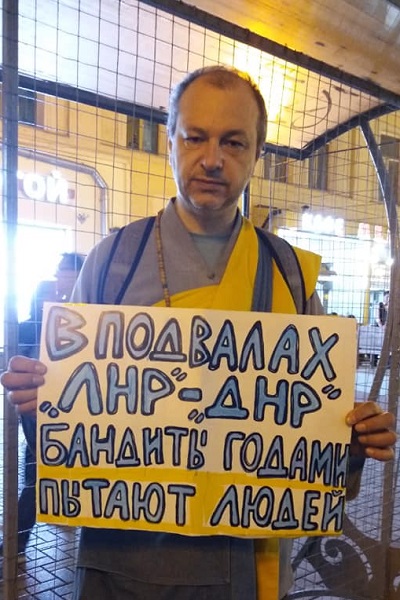 В ПОДВАЛАХ
"ЛНР"-"ДНР"
БАНДИТЫ ГОДАМИ
ПЫТАЮТ ЛЮДЕЙ